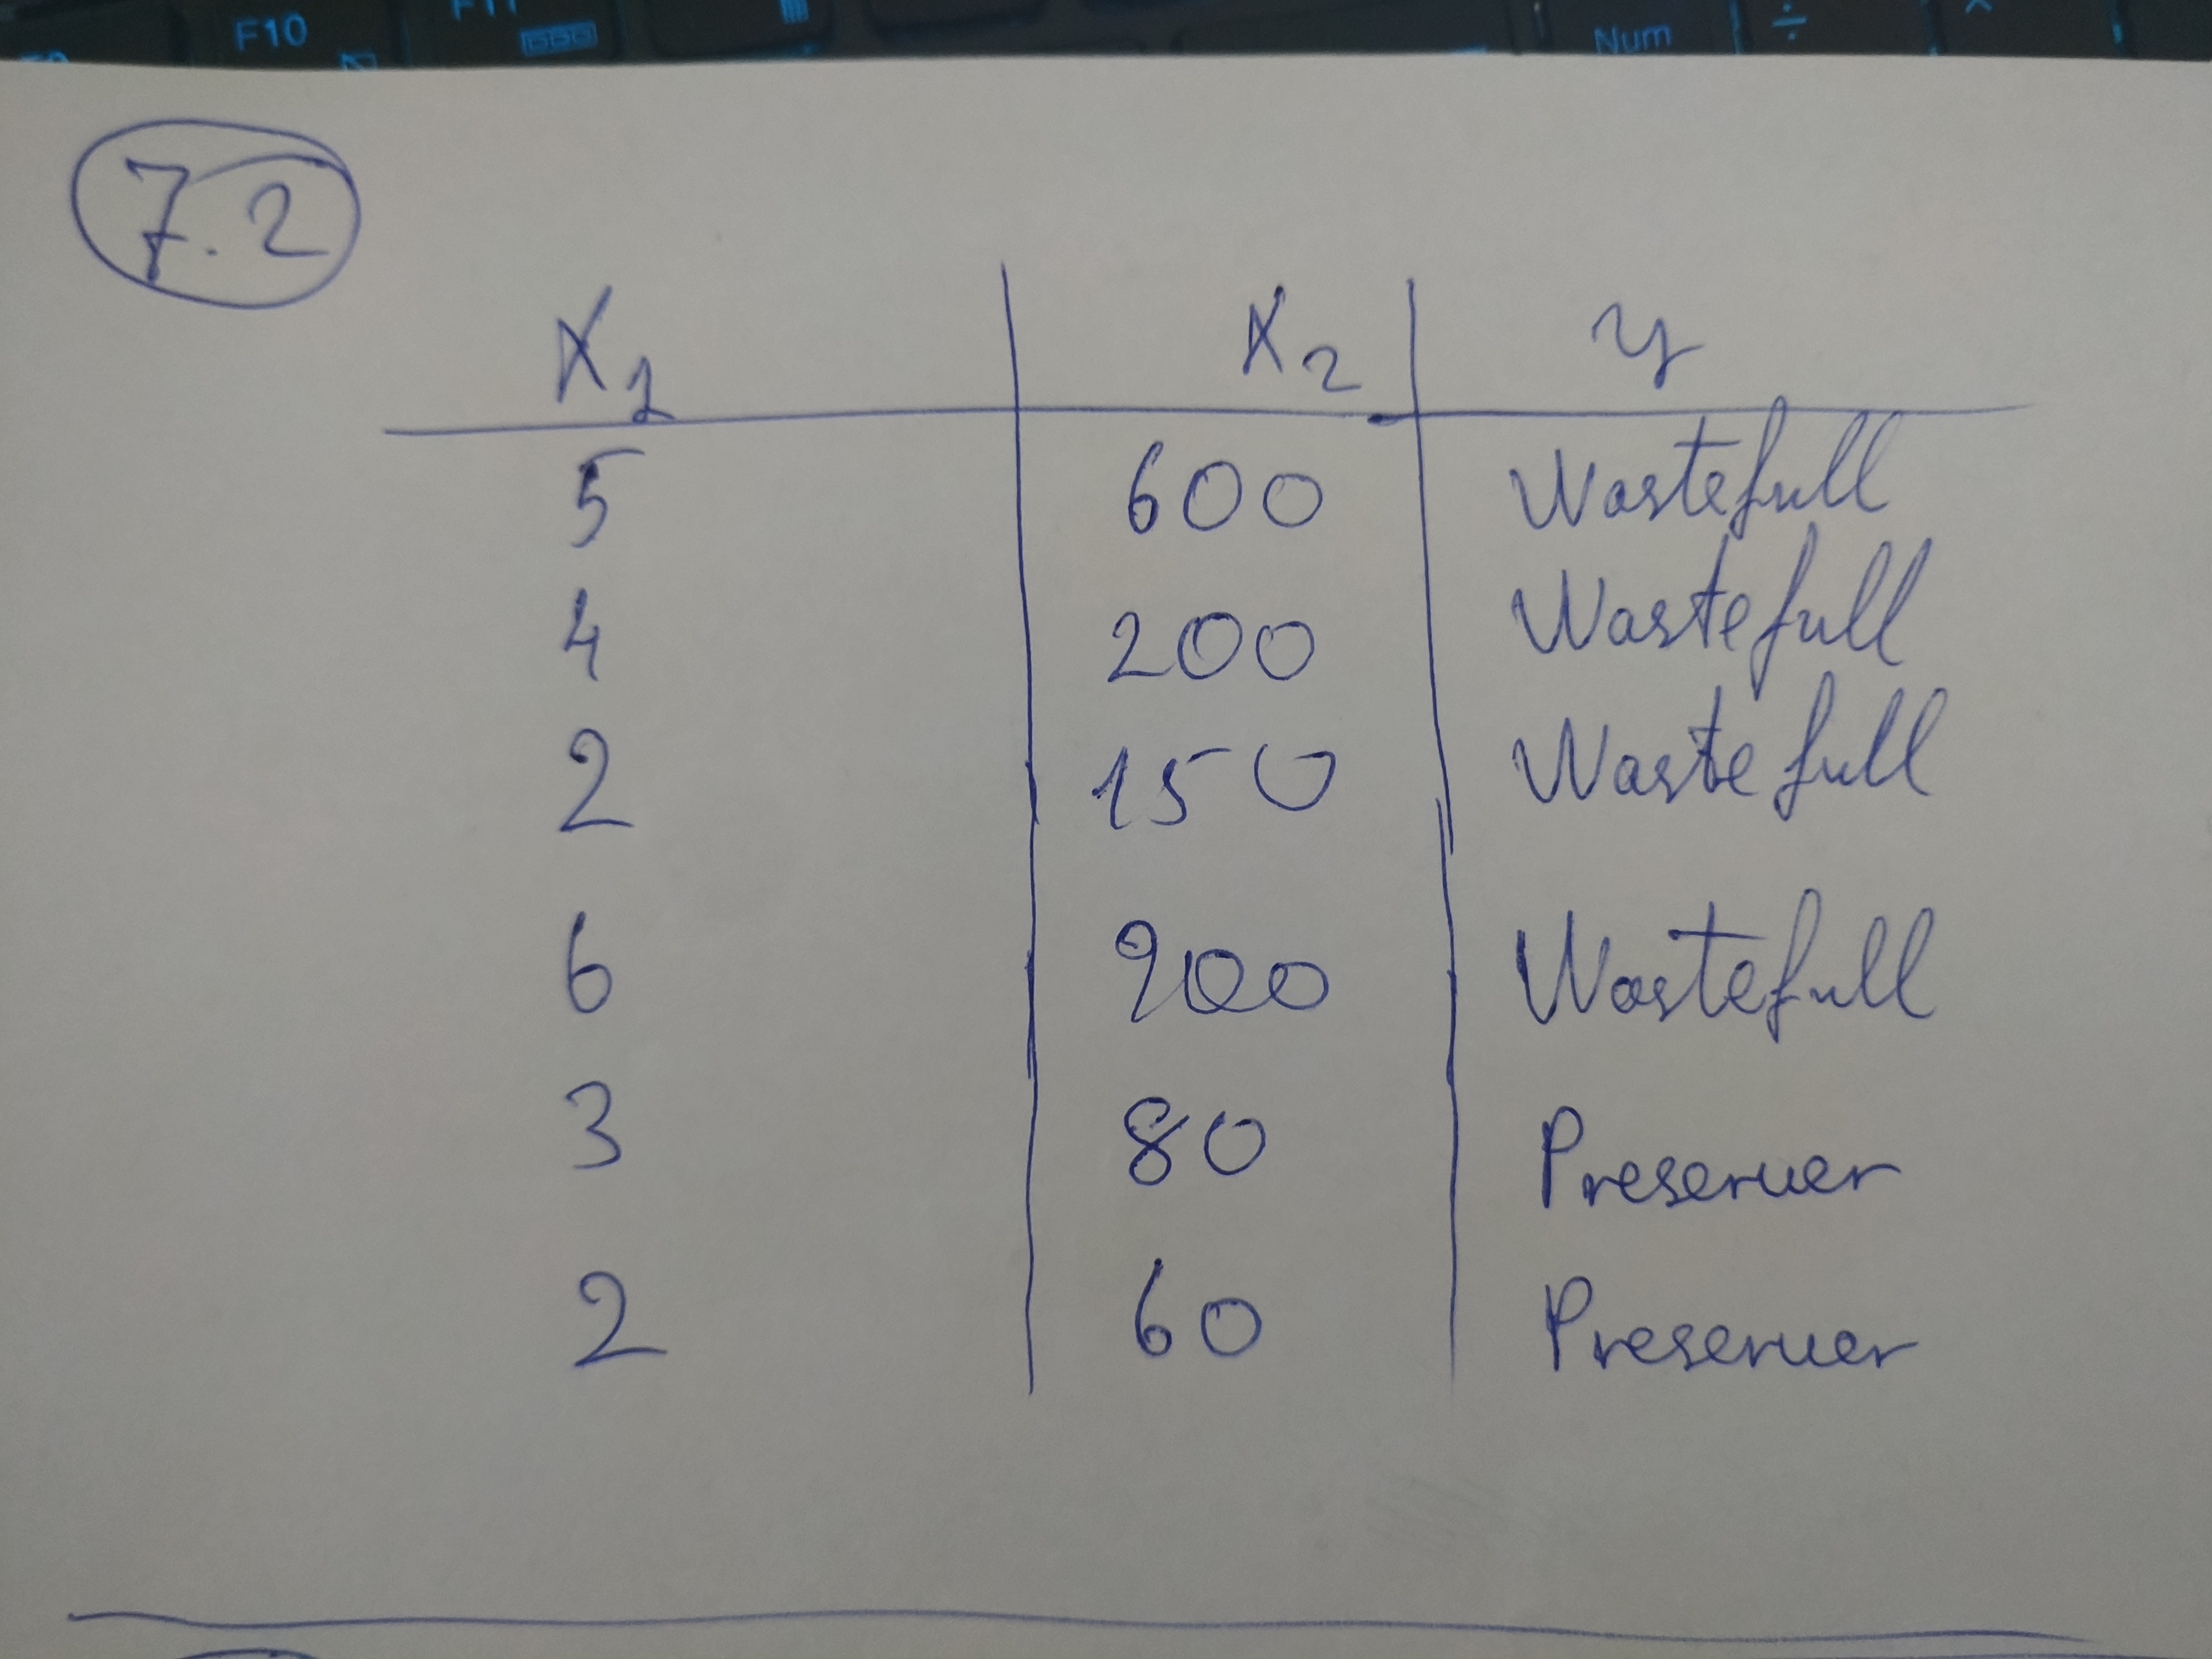 F10
F11
Num
÷
7.2
X1 X2 y
5 600 Wastefull
4 200 Wastefull
2 150 Wastefull
6 900 Wastefull
3 80 Preserver
2 60 Preserver